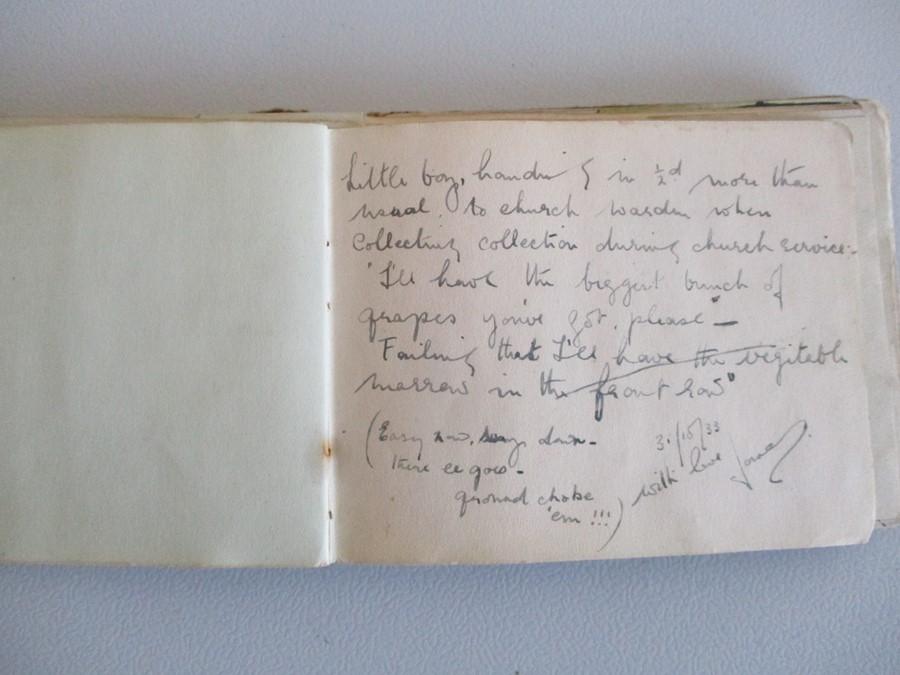 Little boy, handing in ½d more than
usual, to church warden when
Collecting collection during church service:-
"I'll have the biggest bunch of
grapes you've got, please" —
Failing that I'll have the vegitable
marrow in the front row"
(Easy now, down -
there ee goes -
ground choke
'em !!!)
31/10/33
with love